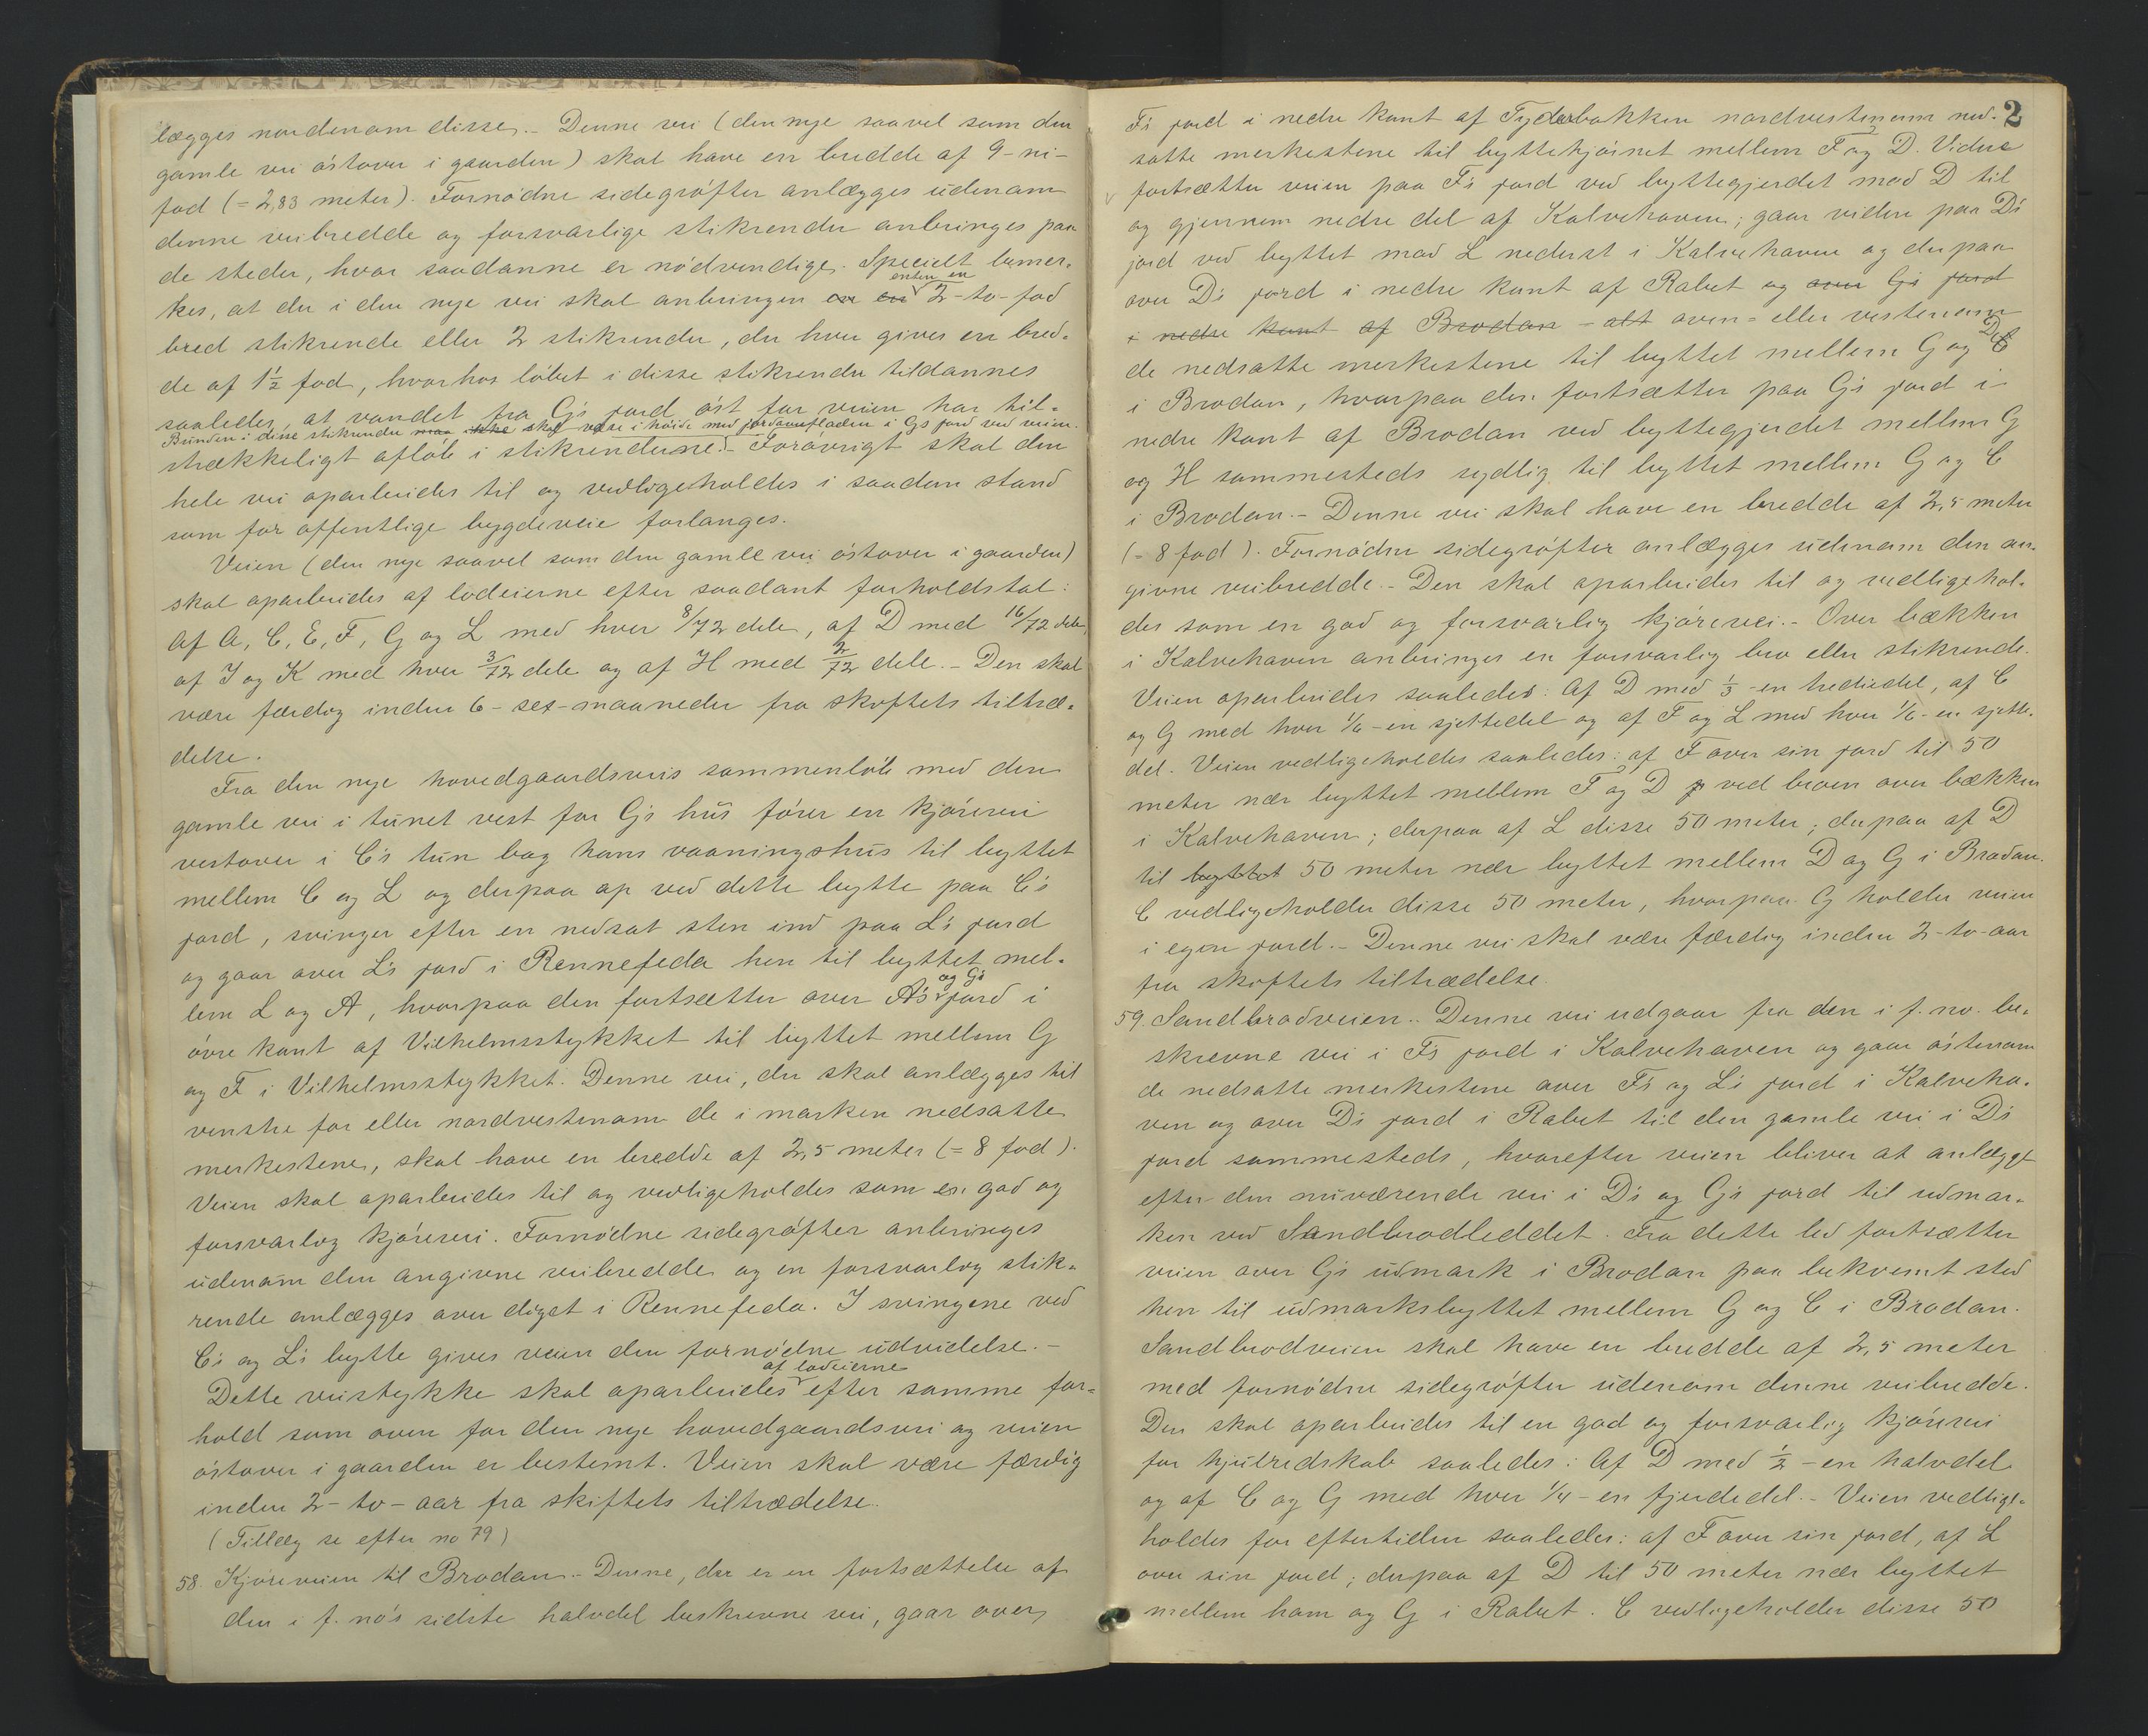 lægges nordenom disse. - Denne vei (den nye saavel som den
gamle vei østover i gaarden) skal have en bredde af 9 - ni -
fod (= 2,83 meter). Fornødne sidegrøfter anlægges udenom
denne veibredde og forsvarlige stikrender anbringes paa
de steder, hvor saadanne er nødvendige. Specielt bemer-
kes, at der i den nye vei skal anbringes en en enten en 2 - to - fod
bred stikrende eller 2 stikrender, der hver gives en bred-
de af 1½ fod, hvorhos løbet i disse stikrender tildannes
saaledes, at vandet fra G's jord øst for veien har til-
Bunden i disse stikrender maa ikke skal være i høide med jordoverfladen i G's jord ved veien.
strækkeligt afløb i stikrenderne. - Forøvrigt skal den
hele vei oparbeides til og vedligeholdes i saadan stand
som for offentlige bygdeveie forlanges.
Veien (den nye saavel som den gamle vei østover i gaarden)
skal oparbeides af lodeierne efter saadant forholdstal:
Af A, C, E, F, G og L med hver 8/72 dele, af D med 16/72 dele,
af J og K med hver 3/72 dele og af H med 2/72 dele. - Den skal
være færdig inden 6 - sex - maaneder fra skiftets tiltræ-
delse.
Fra den nye hovedgaardsveis sammenløb med den
gamle vei i tunet vest for G's hus fører en kjørevei
vestover i C's tun bag hans vaaningshus til byttet
mellem C og L og derpaa op ved dette bytte paa C's
jord, svinger efter en nedsat sten ind paa L's jord
og gaar over L's jord i Rennefeda hen til byttet mel-
lem L og A, hvorpaa den fortsætter over A's og G's jord i
øvre kant af Vilhelmsstykket til byttet mellem G
og F i Vilhelmsstykket. Denne vei, der skal anlægges til
venstre for eller nordvestenom de i marken nedsatte
merkestene, skal have en bredde af 2,5 meter (= 8 fod).
Veien skal oparbeides til og vedligeholdes som en god og
forsvarlig kjørevei. Fornødne sidegrøfter anbringes
udenom den angivne veibredde og en forsvarlig stik-
rende anlægges over diget i Rennefeda. I svingene ved
C's og L's bytte gives veien den fornødne udvidelse. -
Dette veistykke skal oparbeides af lodeierne efter samme for-
hold som oven for den nye hovedgaardsvei og veien
østover i gaarden er bestemt. Veien skal være færdig
inden 2 - to - aar fra skiftets tiltrædelse.
(Tillæg se efter no 79)
58. Kjøreveien til Brodan. - Denne, der er en fortsættelse af
den i f. no's sidste halvdel beskrevne vei, gaar over
2
F's jord i nedre kant af Tyderbakken nordvestenom ned-
satte merkestene til byttehjørnet mellem F og D. Videre
fortsætter veien paa F's jord ved byttegjerdet mod D til
og gjennem nedre del af Kalvehaven; gaar videre paa D's
jord ved byttet mod L nederst i Kalvehaven og derpaa
over D's jord i nedre kant af Rabet og over G's jord
i nedre kant af Brodan - alt oven- eller vestenom
de nedsatte merkestene til byttet mellem G og D
i Brodan, hvorpaa den fortsætter paa G's jord i
nedre kant af Brodan ved byttegjerdet mellem G
og H sammesteds sydlig til byttet mellem G og C
i Brodan. - Denne vei skal have en bredde af 2,5 meter
(= 8 fod). Fornødne sidegrøfter anlægges udenom den an-
givne veibredde. - Den skal oparbeides til og vedligehol-
des som en god og forsvarlig kjørevei. - Over bækken
i Kalvehaven anbringes en forsvarlig bro eller stikrende.
Veien oparbeides saaledes: Af D med 1/3 - en trediedel, af C
og G med hver 1/6 - en sjettedel og af F og L med hver 1/6 - en sjette-
del. Veien vedligeholdes saaledes: af F over sin jord til 50
meter nær byttet mellem F og D ved broen over bækken
i Kalvehaven; derpaa af L disse 50 meter; derpaa af D
til byttet 50 meter nær byttet mellem D og G i Brodan.
C vedligeholder disse 50 meter, hvorpaa G holder veien
i egen jord. - Denne vei skal være færdig inden 2 - to - aar
fra skiftets tiltrædelse.
59. Sandbrodveien. - Denne vei udgaar fra den i f. no. be-
skrevne vei i F's jord i Kalvehaven og gaar østenom
de nedsatte merkestene over F's og L's jord i Kalveha-
ven og over D's jord i Rabet til den gamle vei i D's
jord sammesteds, hvorefter veien bliver at anlægge
efter den nuværende vei i D's og G's jord til udmar-
ken ved Sandbrodleddet. Fra dette led fortsætter
veien over G's udmark i Brodan paa bekvemt sted
hen til udmarksbyttet mellem G og C i Brodan.
Sandbrodveien skal have en bredde af 2,5 meter
med fornødne sidegrøfter udenom denne veibredde.
Den skal oparbeides til en god og forsvarlig kjørevei
for hjulredskab saaledes: Af D med ½ - en halvdel
og af C og G med hver 1/4 - en fjerdedel. - Veien vedlige-
holdes for eftertiden saaledes: af F over sin jord, af L
over sin jord; derpaa af D til 50 meter nær byttet
mellem ham og G i Rabet. C vedligeholder disse 50